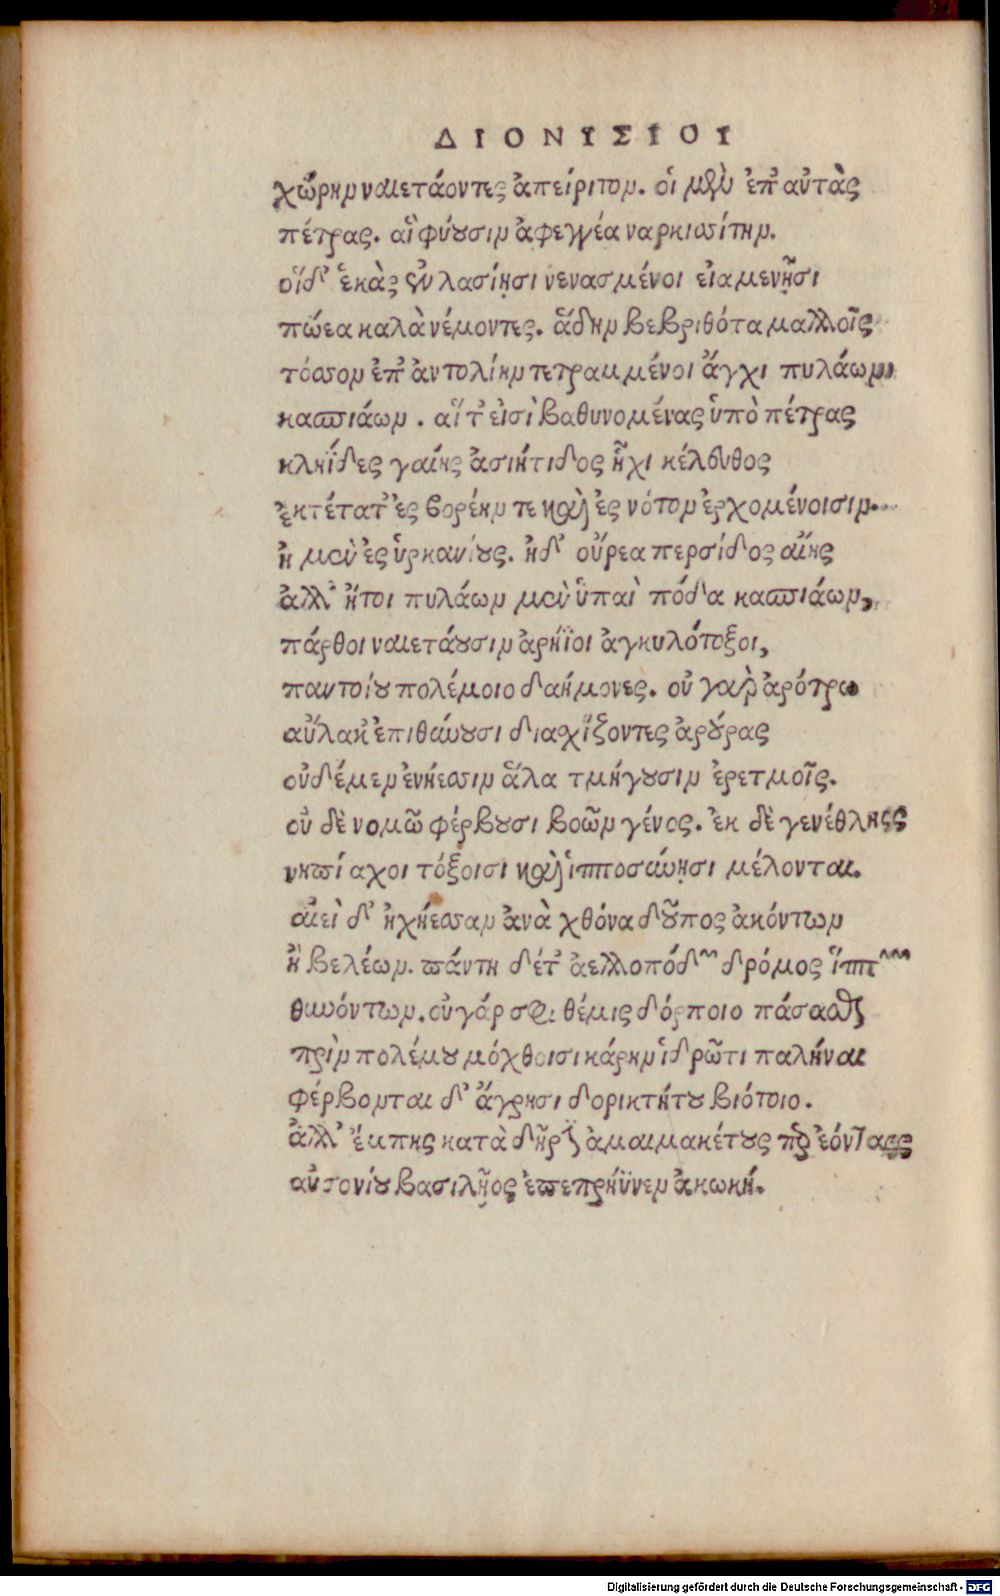 ΔΙΟΝΥΣΙΟΥ
χώρην ναιετάοντες ἀπείριτον. οἱ μὲν ἐπ' αὐτὰς
πέτρας. αἳ φύουσιν ἀφεγγέα ναρκισσίτην.
οἵδ' ἑκὰς ἐν λασίῃσι νενασμένοι εἰαμενῇσι
πώεα καλὰ νέμοντες. ἅδην βεβριθότα μαλλοῖς
τόσσον ἐπ' ἀντολίην τετραμμένοι ἄγχι πυλάων
κασπιάων. αἵ τ' εἰσὶ βαθυνομένας ὑπὸ πέτρας
κληΐδες γαίης ἀσιήτιδος ἧχι κέλευθος
ἐκτέτατ' ἐς βορέην τε καὶ ἐς νότον ἐρχομένοισιν.
ἡ μὲν ἐς ὑρκανίους. ἡδ' οὔρεα περσίδος αἴης
ἀλλ' ἤτοι πυλάων μὲν ὑπαὶ πόδα κασπιάων,
πάρθοι ναιετάουσιν ἀρήϊοι ἀγκυλότοξοι,
παντοίου πολέμοιο δαήμονες. οὐ γὰρ ἀρότρω
αὔλακ' ἐπιθύουσι διασχίζοντες ἀρούρας
οὐδέ μεν ἐνήεσσιν ἅλα τμήγουσιν ἐρετμοῖς.
οὐ δὲ νομῶ φέρβουσι βοῶν γένος. ἐκ δὲ γενέθλης
νηπίαχοι τόξοισι καὶ ἱπποσύνῃσι μέλονται.
αἰεὶ δ' ἠχήεσσαν ἀνὰ χθόνα δοῦπος ἀκόντων
ἢ βελέων. πάντη δέ τ' ἀελλοπόδων δρόμος ἵππων
θυόντων. οὐ γάρ σφι θέμις δόρποιο πάσασθαι
πρὶν πολέμου μόχθοισι κάρην ἱδρῶτι παλῆναι
φέρβονται δ' ἄγρῃσι δορικτήτου βιότοιο.
ἀλλ' ἔμπης κατὰ δῆριν ἀμαιμακέτους περ ἐόντας
αὐσονίου βασιλῆος ἐπεπρήϋνεν ἀκωκή.
Digitalisierung gefördert durch die Deutsche Forschungsgemeinschaft - DFG